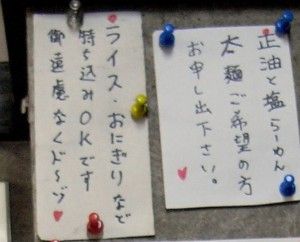 正油と塩らーめん
太麺ご希望の方
お申し出下さい。
ライス・おにぎりなど
持ち込みOKです
御遠慮なくド〜ゾ